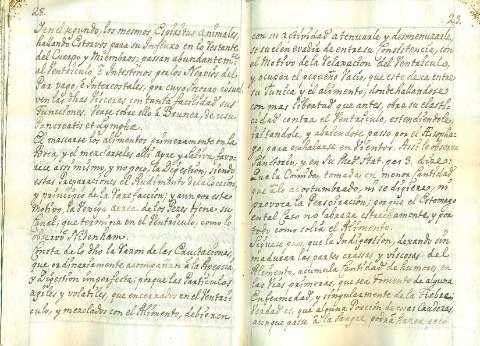 28.
Y en el segundo, los mesmos Espiritus animales,
hallando estorvos para su Influxo en lo restante
del Cuerpo, y Miembros, passan abundantem.te
al Ventriculo è Intestinos por los Nervios del
Par vago, è Intercostales, por cuya
ven las tales Visceras con tanta facilidad sus
Funciones. Vease sobre ello à Brunero, de usu
Pancreatis et Lymphæ.
El mascarse los alimentos primeramente en la
Boca, y el mezclarseles alli Ayre, y Saliva, favo-
rece assi mismo, y no poco, la Digestion; siendo
estas Preparaciones el Rudimento de la Coccion,
y principio de la Putrefaccion; y aun por este
Motivo, la Vexiga Aerea de los Pezes tiene su
Canal, que termina en el Ventriculo, como lo
observò Nedenham.
Consta de lo dho la razon de las Cructaciones,
que ordinariamente acompañan à la Apepsia
y Digestion imperfecta; porque las Particulas
agiles y volatiles, que encerradas en el Ventri-
culo, y mezcladas con el Alimento, debieren
29.
con su actividad atenuarle y desmenuzarle,
se suelen evadir de entre su Consistencia, con
el Motivo de la Relaxacion del Ventriculo,
y ocupar el pequeño Vacio, que este dexa entre
su Tunica y el alimento, donde hallandose
con mas libertad que antes, obra su elasti-
cidad contra el Ventriculo, estendiendole,
irritandole, y abriendose passo por el Esopha-
go, para exhalarse en Vientos. Assi lo observa
Sanctorio, en su Med. Stat. par. 3. dize:
Que la Comida, tomada en menor Cantidad
que la acostumbrada, ni se digiere, ni
provoca la Perspiracion; porque el Estomago
en tal Caso no abraza estrechamente, y por
todo, como solia el Alimento.
Siguese pues, que la Indigestion, dexando sin
madurar las partes crassas y viscosas del
Alimento, acumula Cantidad de humores en
las vias primeras, que sea fomento de alguna
Enfermedad, y singularmente de la Fiebre.
Verdad es, que alguna Porcion de essas Crudezas
aunque passe à la Sangre, podrà hazer poco